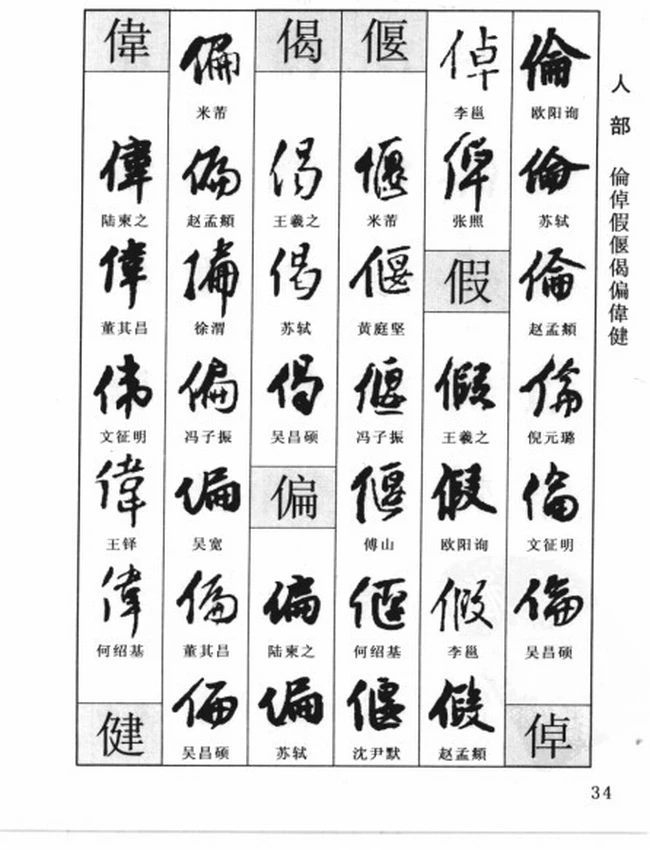 人部 倫倬假偃偈偏偉健
倫
欧阳询
倫
苏轼
倫
赵孟頫
倫
倪元璐
倫
文征明
倫
吴昌硕
倬
倬
李邕
倬
张照
假
假
王羲之
假
欧阳询
假
李邕
假
赵孟頫
偃
偃
米芾
偃
黄庭坚
偃
冯子振
偃
傅山
偃
何绍基
偃
沈尹默
偈
偈
王羲之
偈
苏轼
偈
吴昌硕
偏
偏
陆柬之
偏
苏轼
偏
米芾
偏
赵孟頫
偏
徐渭
偏
冯子振
偏
吴宽
偏
董其昌
偏
吴昌硕
偉
偉
陆柬之
偉
董其昌
伟
文征明
偉
王铎
偉
何绍基
健
34